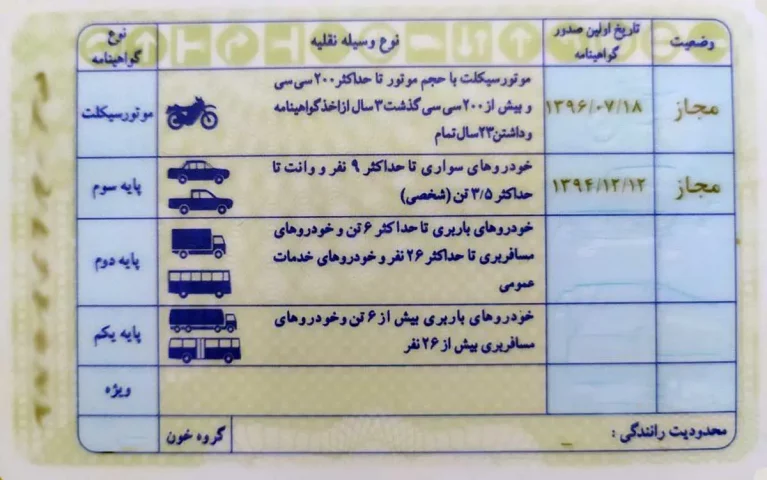 وضعیت
تاریخ اولین صدور
گواهینامه
نوع وسیله نقلیه
نوع
گواهینامه
مجاز
۱۳۹۶/۰۷/۱۸
موتورسیکلت با حجم موتور تا حداکثر ۲۰۰ سی سی
و بیش از ۲۰۰ سی سی گذشت ۳ سال ازاخذگواهینامه
وداشتن ۲۳ سال تمام
موتورسیکلت
مجاز
۱۳۹۴/۱۲/۱۲
خودروهای سواری تا حداکثر ۹ نفر و وانت تا
حداکثر ۳/۵ تن (شخصی)
پایه سوم
خودروهای باربری تا حداکثر ۶ تن و خودروهای
مسافربری تا حداکثر ۲۶ نفر و خودروهای خدمات
عمومی
پایه دوم
خودروهای باربری بیش از ۶ تن و خودروهای
مسافربری بیش از ۲۶ نفر
پایه یکم
ویژه
محدودیت رانندگی :
گروه خون